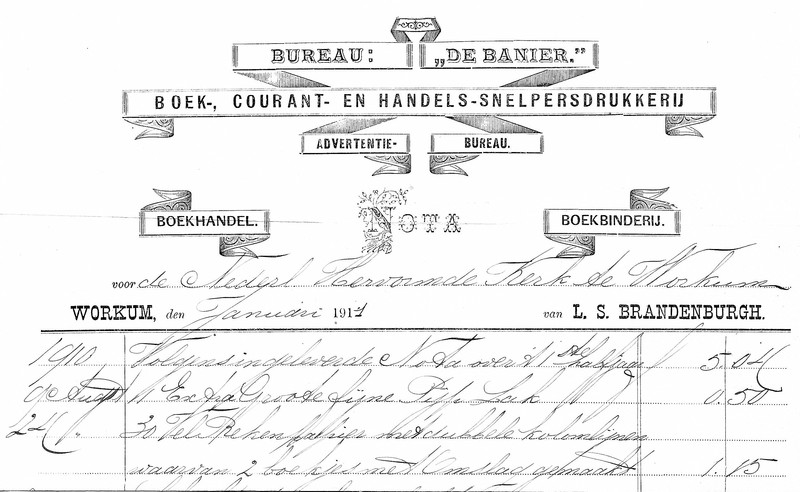 BUREAU: „DE BANIER.”
BOEK-, COURANT- EN HANDELS-SNELPERSDRUKKERIJ
ADVERTENTIE- BUREAU.
BOEKHANDEL. NOTA BOEKBINDERIJ.
voor de Nederl Hervormde Kerk te Workum
WORKUM, den Januari 1911 van L. S. BRANDENBURGH.
1910 Volgens ingeleverde Nota over 't 1ste halfjaar f 5.04
Augt 1 Extra Groote fijne Pijp Lak 0.50
24 " 30 Vel Reken papier met dubbele kolomlijnen
waarvan 2 boekjes met Omslag gemaakt 1.15